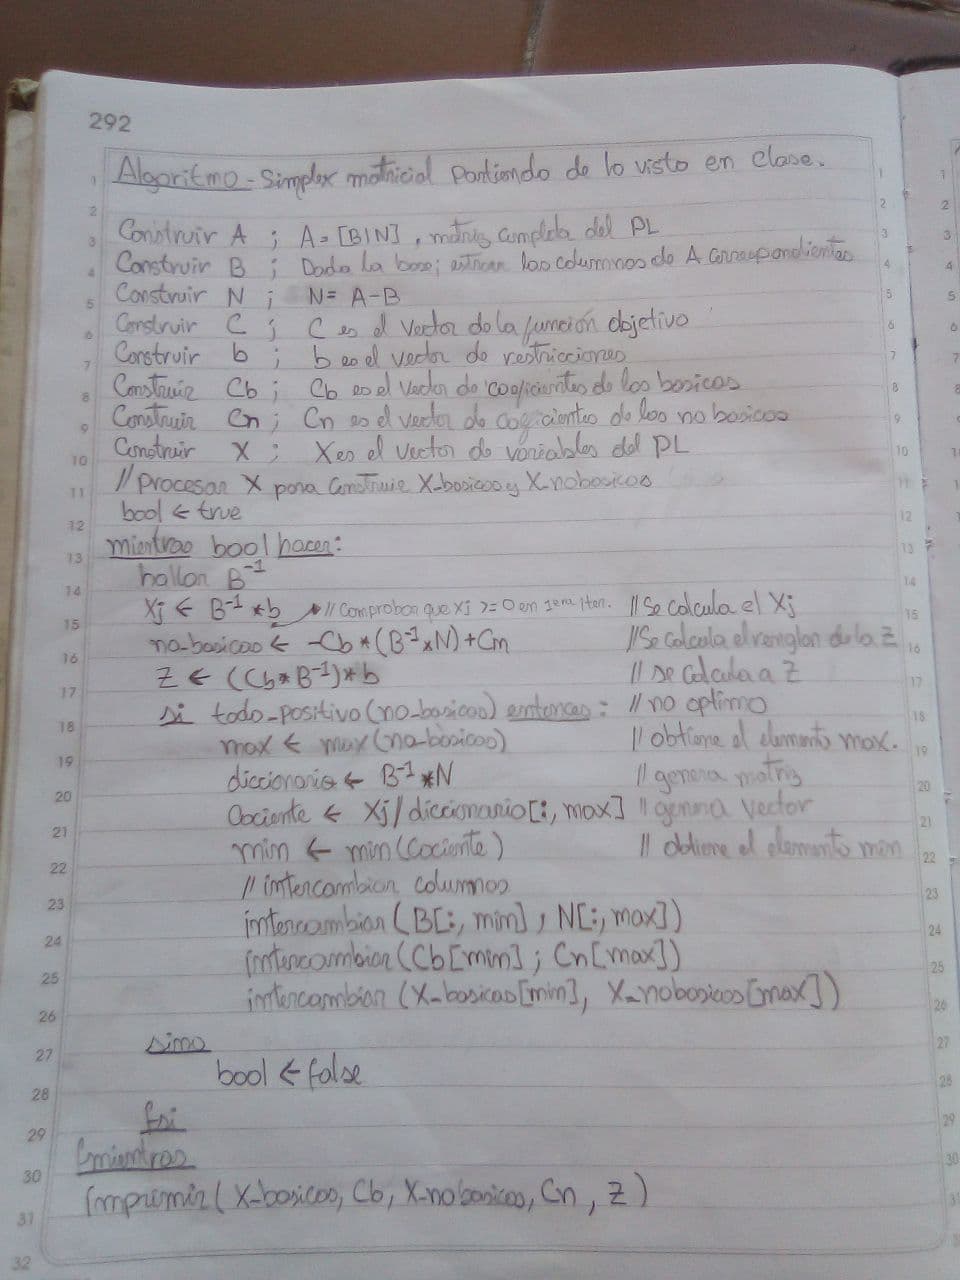 292
Algoritmo - Simplex matricial Partiendo de lo visto en clase.
Construir A ; A = [B|N] , matriz completa del PL
Construir B ; Dada la base; extraer las columnas de A correspondientes
Construir N ; N = A - B
Construir C ; C es el vector de la función objetivo
Construir b ; b es el vector de restricciones
Construir Cb ; Cb es el vector de coeficientes de los basicos
Construir Cn ; Cn es el vector de coeficientes de los no basicos
Construir X ; X es el vector de variables del PL
// Procesar X para construir X_basicos y X_nobasicos
bool ← true
mientras bool hacer:
hallar B⁻¹
Xj ← B⁻¹ * b // Comprobar que Xj >= 0 en 1era iter. // Se calcula el Xj
no_basicas ← -Cb * (B⁻¹ * N) + Cn // Se calcula el renglon de la Z
Z ← ((Cb * B⁻¹) * b // se calcula a Z
si todo_positivo (no_basicas) entonces: // no optimo
max ← max (no_basicos) // obtiene el elemento max.
diccionario ← B⁻¹ * N // genera matriz
Cociente ← Xj / diccionario [:, max] // genera vector
min ← min (Cociente) // obtiene el elemento min
// intercambiar columnas
intercambiar (B[:, min] , N[:, max])
intercambiar (Cb[min] ; Cn[max])
intercambiar (X_basicas[min], X_nobasicos[max])
sino
bool ← false
fsi
fmientras
Imprimir (X_basicos, Cb, X_nobasicos, Cn , Z )
1
2
3
4
5
6
7
8
9
10
11
12
13
14
15
16
17
18
19
20
21
22
23
24
25
26
27
28
29
30
31
32